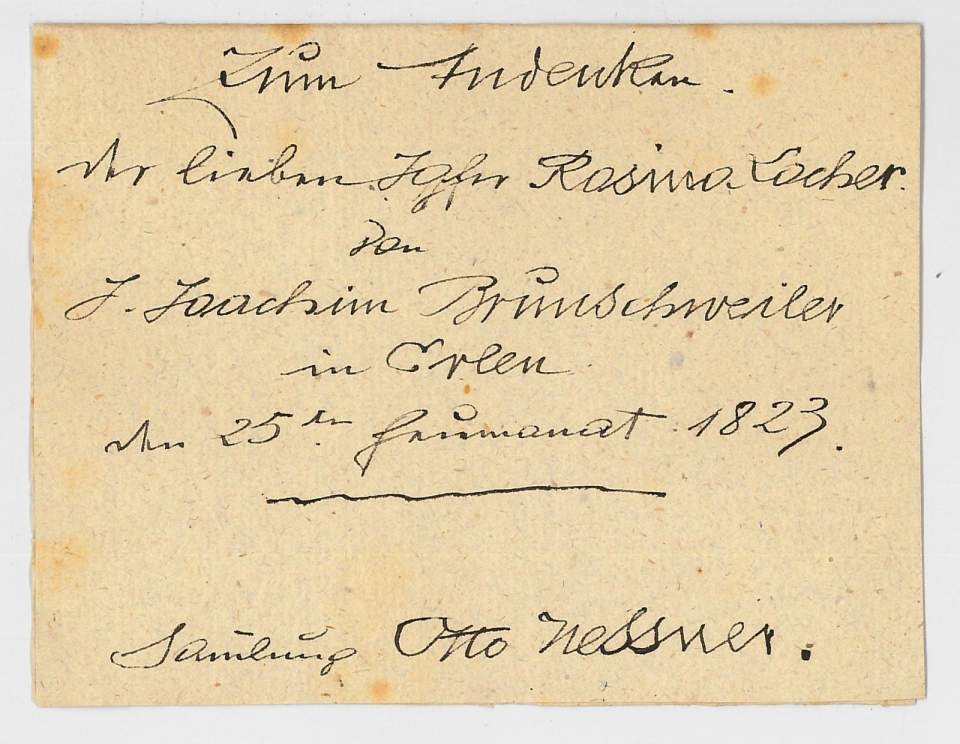 Zum Andenken.
der lieben Jgfr Rosina Locher.
von
J. Joachim Brunschweiler
in Erlen
den 25ten Heumonat 1823.
Samlung Otto Nessner.